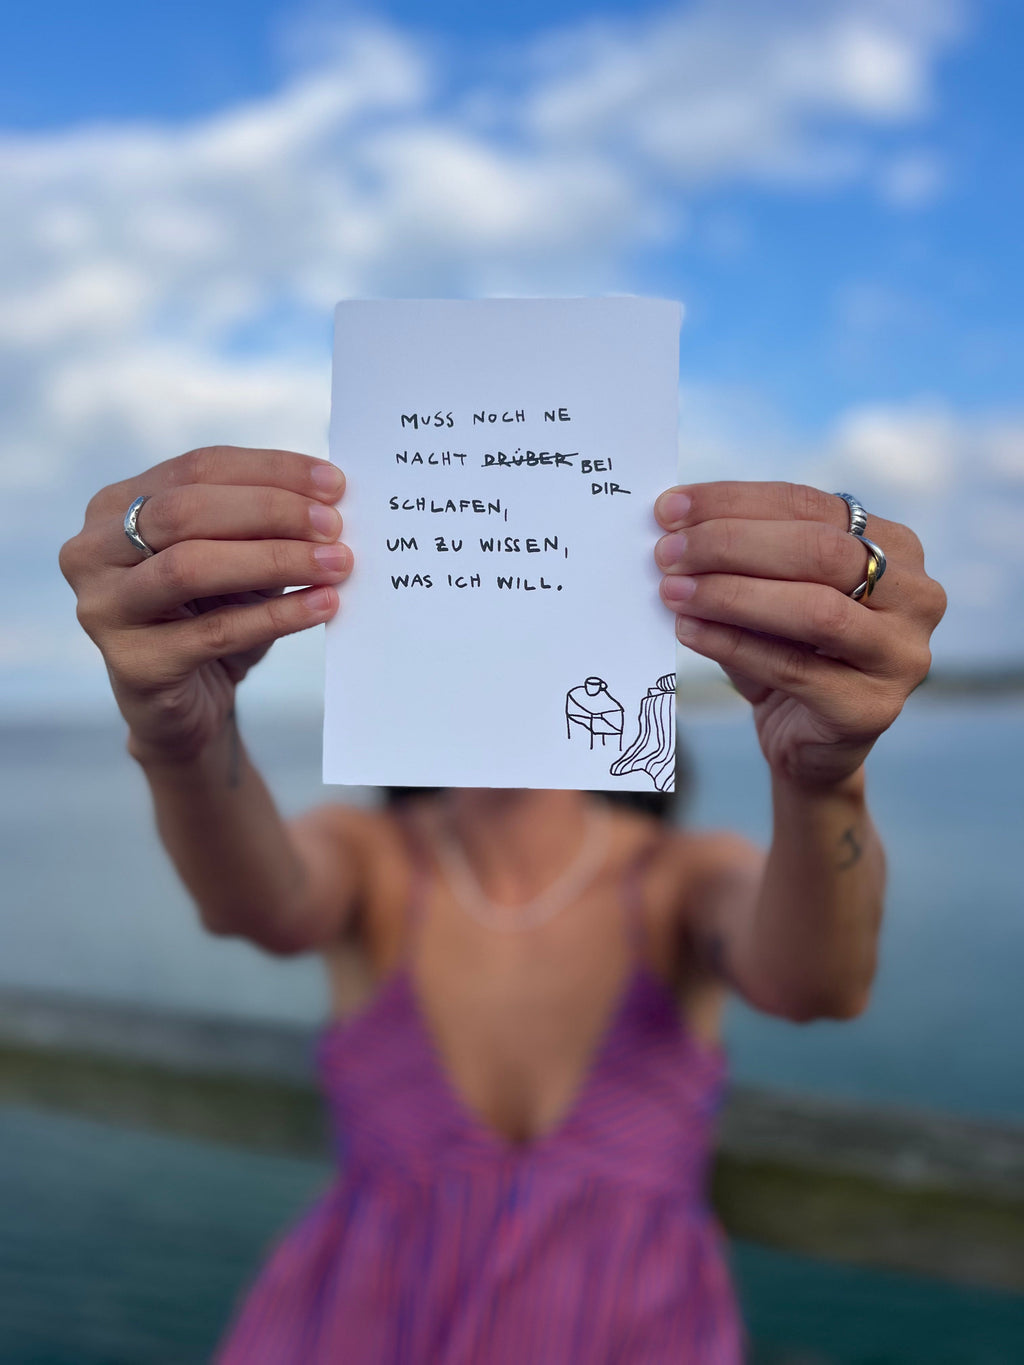 MUSS NOCH NE
NACHT DRÜBER BEI
DIR
SCHLAFEN,
UM ZU WISSEN,
WAS ICH WILL.